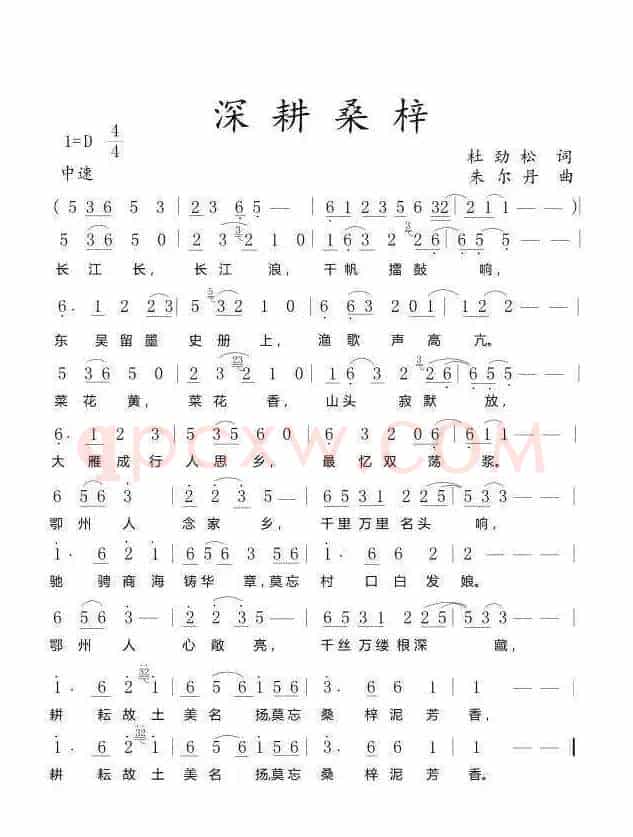 深耕桑梓
1=D 4/4
杜劲松 词
中速
朱尔丹 曲
( 5 3 6 5 3 | 2 3 6 5 | 5 — — | 6 1 2 3 5 6 32 | 2 1 1 — ) |
5 3 6 5 0 | 2 3 2 1 0 | 1 6 3 2 2 6 | 6 5 5 — |
长江长，长江浪，千帆擂鼓响，
6. 1 2 2 3 | 5 3 2 1 — | 6 6 3 2 0 1 | 1 2 2 — |
东吴留墨史册上，渔歌声高亢。
5 3 6 5 0 | 2 3 2 1 0 | 1 6 3 2 2 6 | 6 5 5 — |
菜花黄，菜花香，山头寂默放，
6. 1 2 3 | 5 3 5 6 0 | 6 3 2 0 6 | 6 1 1 — |
大雁成行人思乡，最忆双荡浆。
qpcxw.COM
6 5 6 3 | 2 2 3 5 | 6 5 3 1 2 2 1 | 2 — — — |
鄂州人念家乡，千里万里名头响，
1. 6 2 1 | 5 6 5 6 1 5 6 | 3. 6 6 1 | 1 — — — |
驰骋商海铸华章，莫忘村口白发娘。
6 5 6 3 — | 2 2 3 5 — | 6 5 3 1 2 2 5 | 5 3 3 — |
鄂州人心敞亮，千丝万缕根深藏，
1. 6 2 1 | 5 6 5 6 1 5 6 | 3. 6 6 1 | 1 — — |
耕耘故土美名扬，莫忘桑梓泥芳香，
1. 6 2 1 | 5 6 5 6 1 5 6 | 3. 6 6 1 | 1 — — |
耕耘故土美名扬，莫忘桑梓泥芳香。